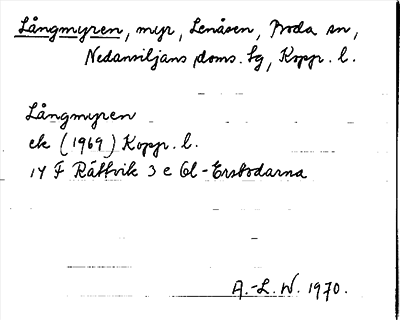 Långmyren, myr, Lenåsen, Boda sn,
Nedansiljans doms. tg, Koppr. l.
Långmyren
ek (1969) Koppr. l.
14 F Rättvik 3 e Ol-Ersbodarna
A.-L. W. 1970.